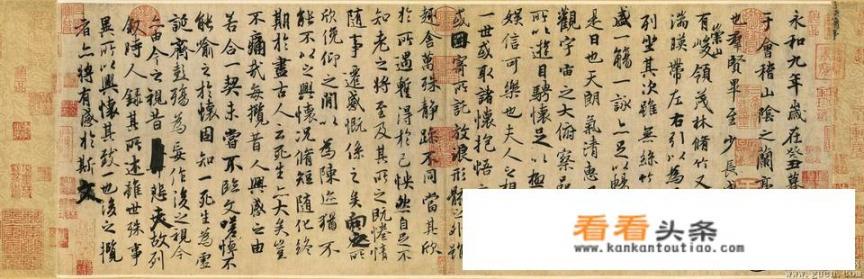 永和九年歲在癸丑暮
于會稽山陰之蘭亭
也羣賢畢至少長
有峻領茂林脩竹又
崇山
湍暎帶左右引以為
列坐其次雖無絲竹
盛一觴一詠亦足以暢
是日也天朗氣清惠
觀宇宙之大俯察品
所以遊目騁懷足以極
娛信可樂也夫人之相
一世或取諸懷抱悟言
或因寄所託放浪形骸之外雖
趣舍萬殊靜躁不同當其欣
於所遇蹔得於己怏然自足不
知老之將至及其所之既惓情
隨事遷感慨係之矣向之所
欣俛仰之間以為陳迹猶不
能不以之興懷況脩短隨化終
期於盡古人云死生亦大矣豈
不痛哉每攬昔人興感之由
若合一契未嘗不臨文嗟悼不
能喻之於懷固知一死生為虛
誕齊彭殤為妄作後之視今
亦由今之視昔悲夫故列
敘時人錄其所述雖世殊事
異所以興懷其致一也後之攬
者亦將有感於斯文
看看头条
www.kankantoutiao.com